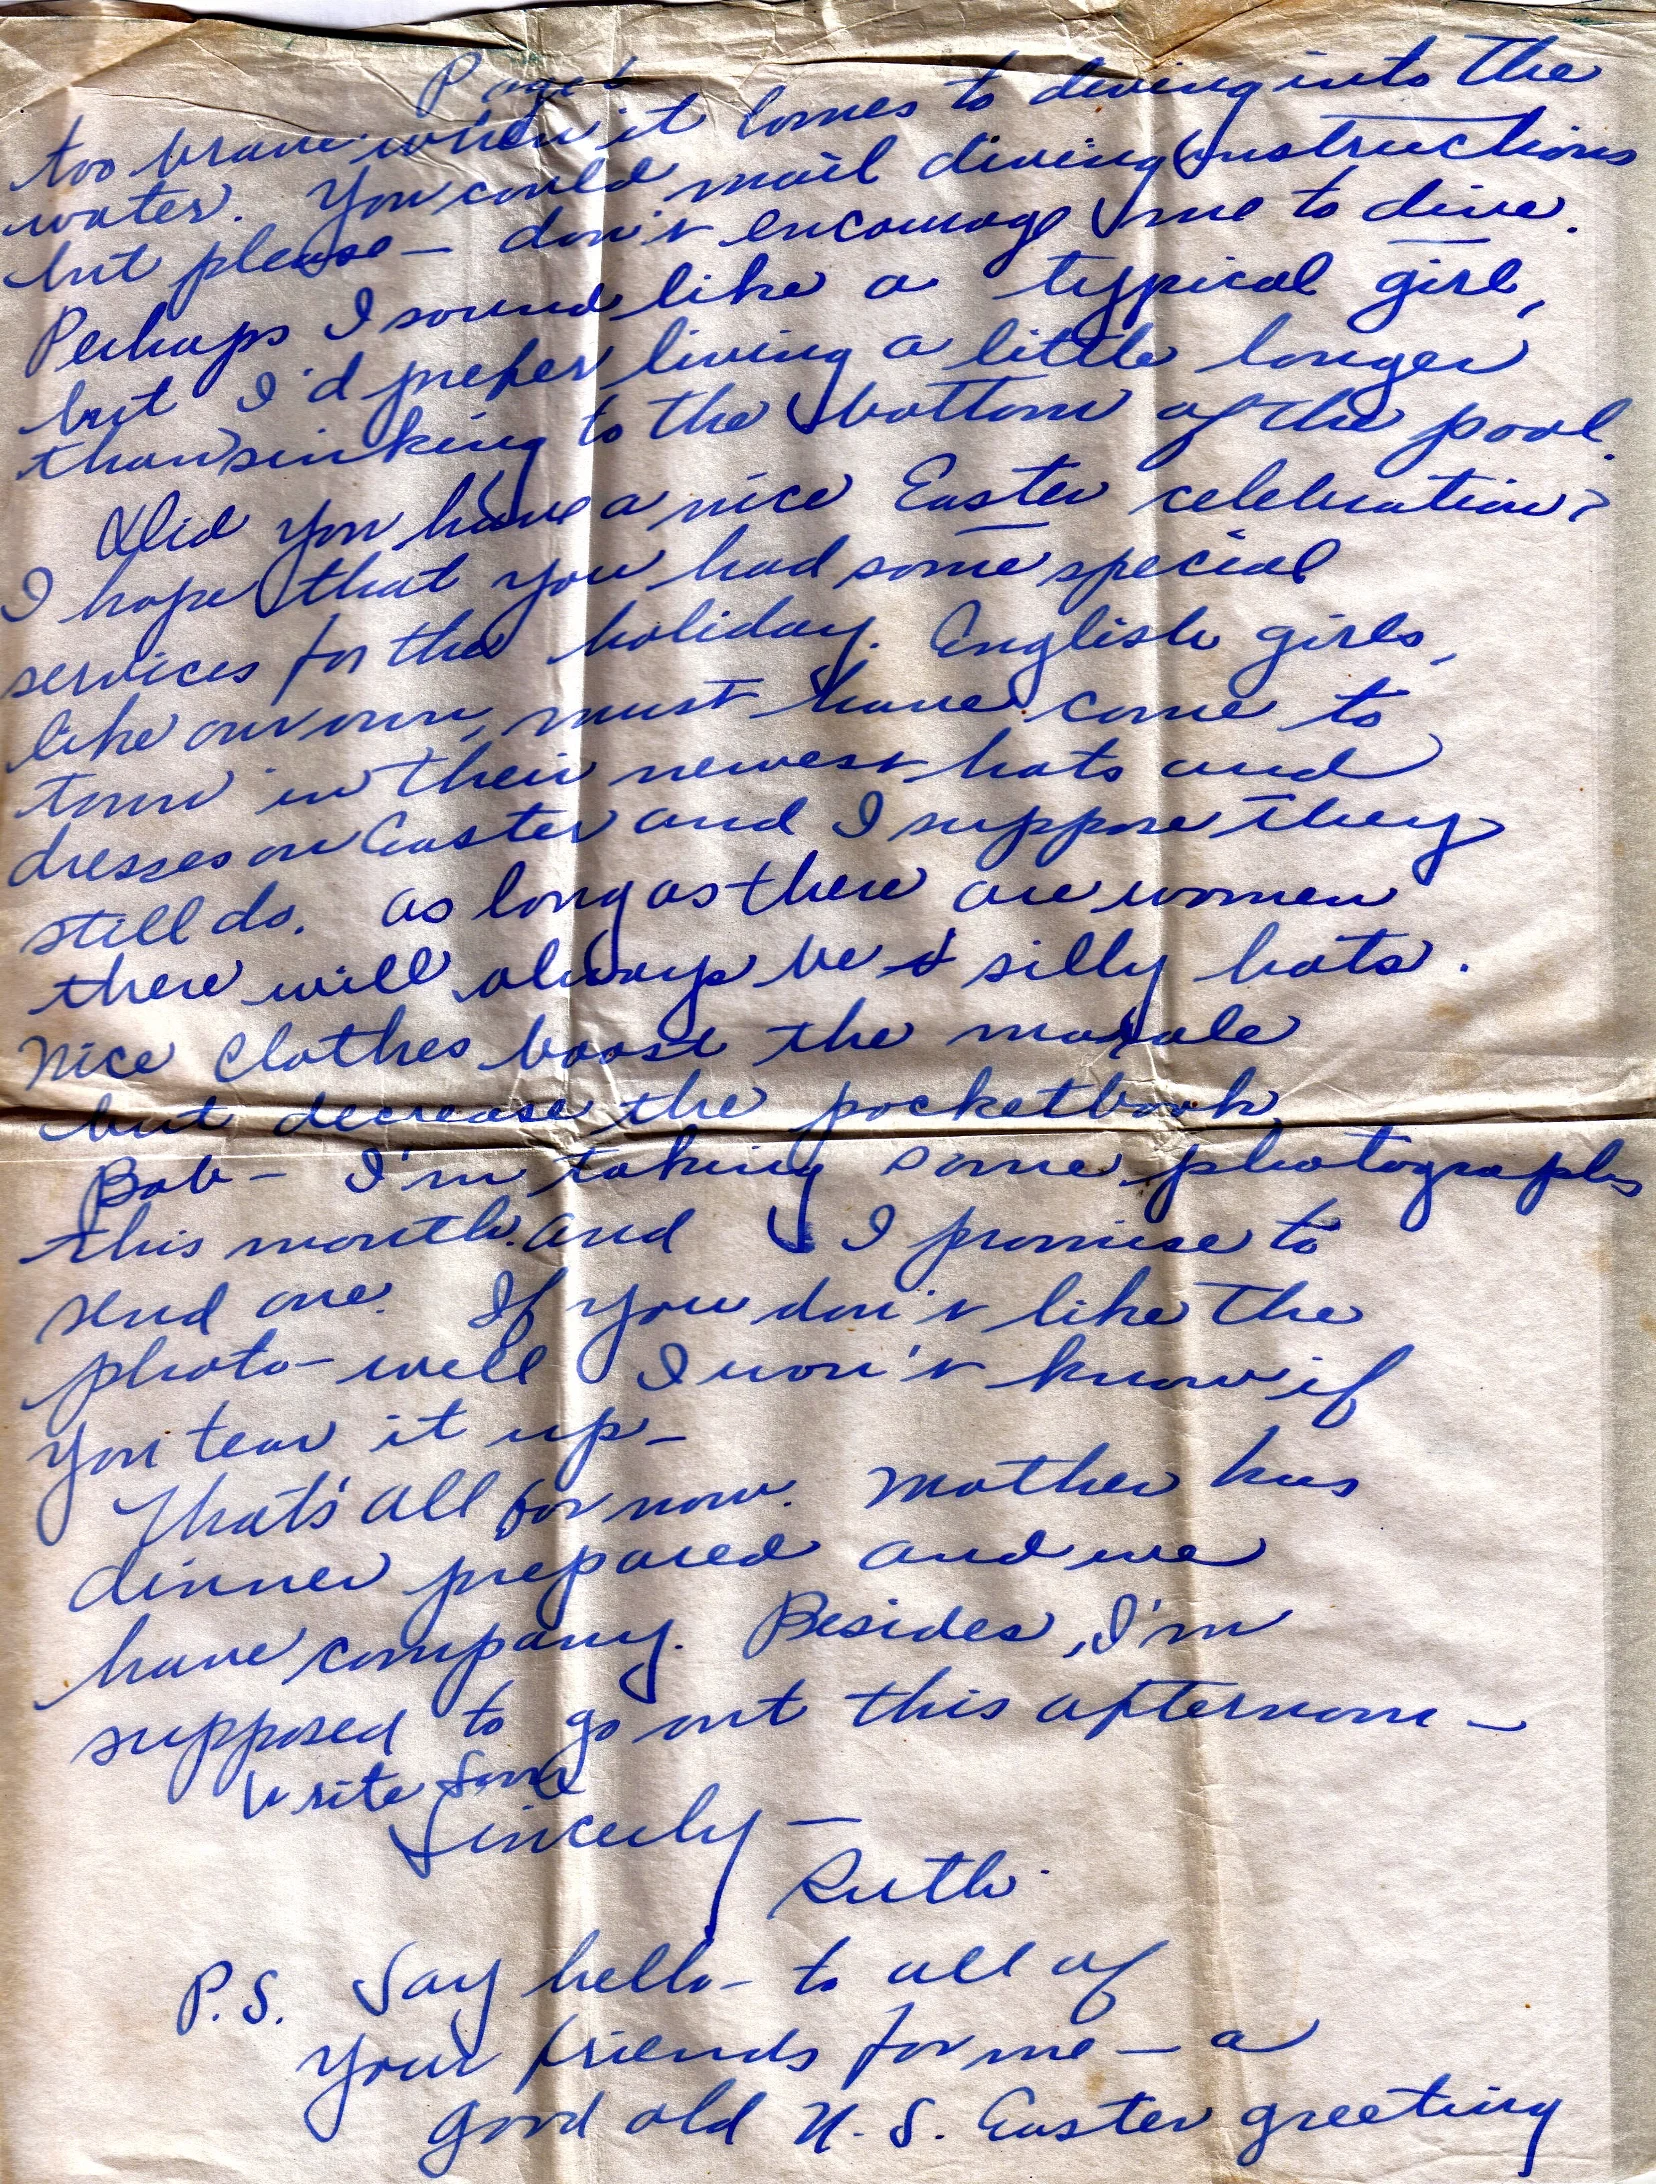 Page 6
too brave when it comes to diving into the
water. You could mail diving instructions
but please – don't encourage me to dive.
Perhaps I sound like a typical girl,
but I'd prefer living a little longer
than sinking to the bottom of the pool.
Did you have a nice Easter celebration?
I hope that you had some special
services for the holiday. English girls,
like our own, must have come to
town in their newest hats and
dresses on Easter and I suppose they
still do. As long as there are women
there will always be silly hats.
Nice clothes boost the morale
but decrease the pocketbook
Bob – I'm taking some photographs
this month. and I promise to
send one. If you don't like the
photo – well I won't know if
you tear it up –
That's all for now. Mother has
dinner prepared and we
have company. Besides, I'm
supposed to go out this afternoon –
Write Soon
Sincerely –
Ruth
P.S. Say hello – to all of
your friends for me – a
good old U.S. Easter greeting